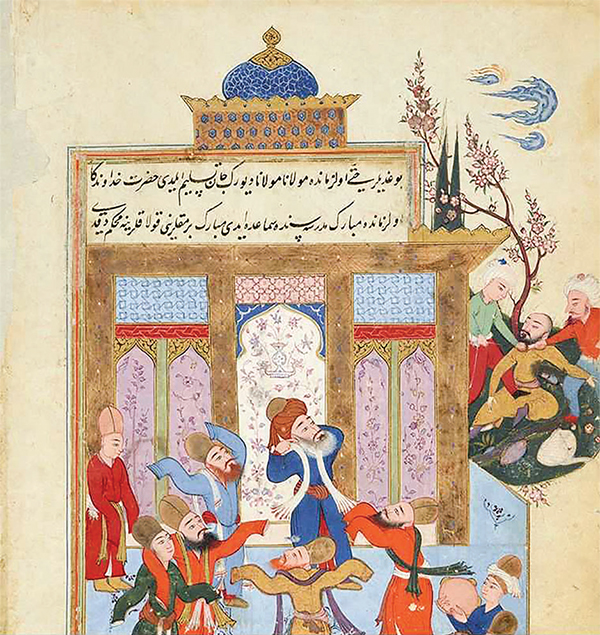 بوغدیلر حتی اول زمانده مولانا مولانا دیورک جان تسلیم ایلدی حضرت خداوندکا
اول زمانده مبارک مدرسه سنده سماعده ایدی مبارک برمقلرینی قولاقلرینه محکم دیقدی